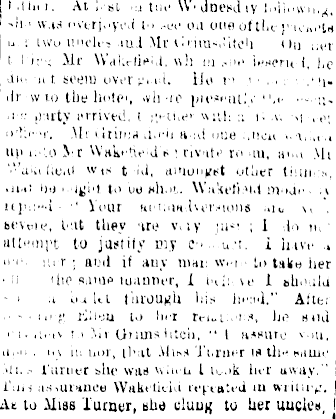 At last on the Wednesday following,
she was overjoyed to see on one of the packets
two uncles and Mr Grimsditch On her
Mr. Wakefield, whom she deserted, he
did not seem over
drew to the hotel, where presently the
party arrived, together with
officer. Mr Grimsditch and one uncle
up into Mr Wakefield's private room, and Mr
Wakefield was told, amongst other things,
that he ought to be shot. Wakefield modestly
replied " Your animadversions are very
severe, but they are very just ; I do not
attempt to justify my conduct. I have a
daughter ; and if any man were to take her
the same manner, I believe I should
a bullet through his head." After
Ellen to her relations, he said
to Mr Grimsditch, " I assure you,
upon my honor, that Miss Turner is the same
Miss Turner she was when I took her away."
This assurance Wakefield repeated in writing.
As to Miss Turner, she clung to her uncles,